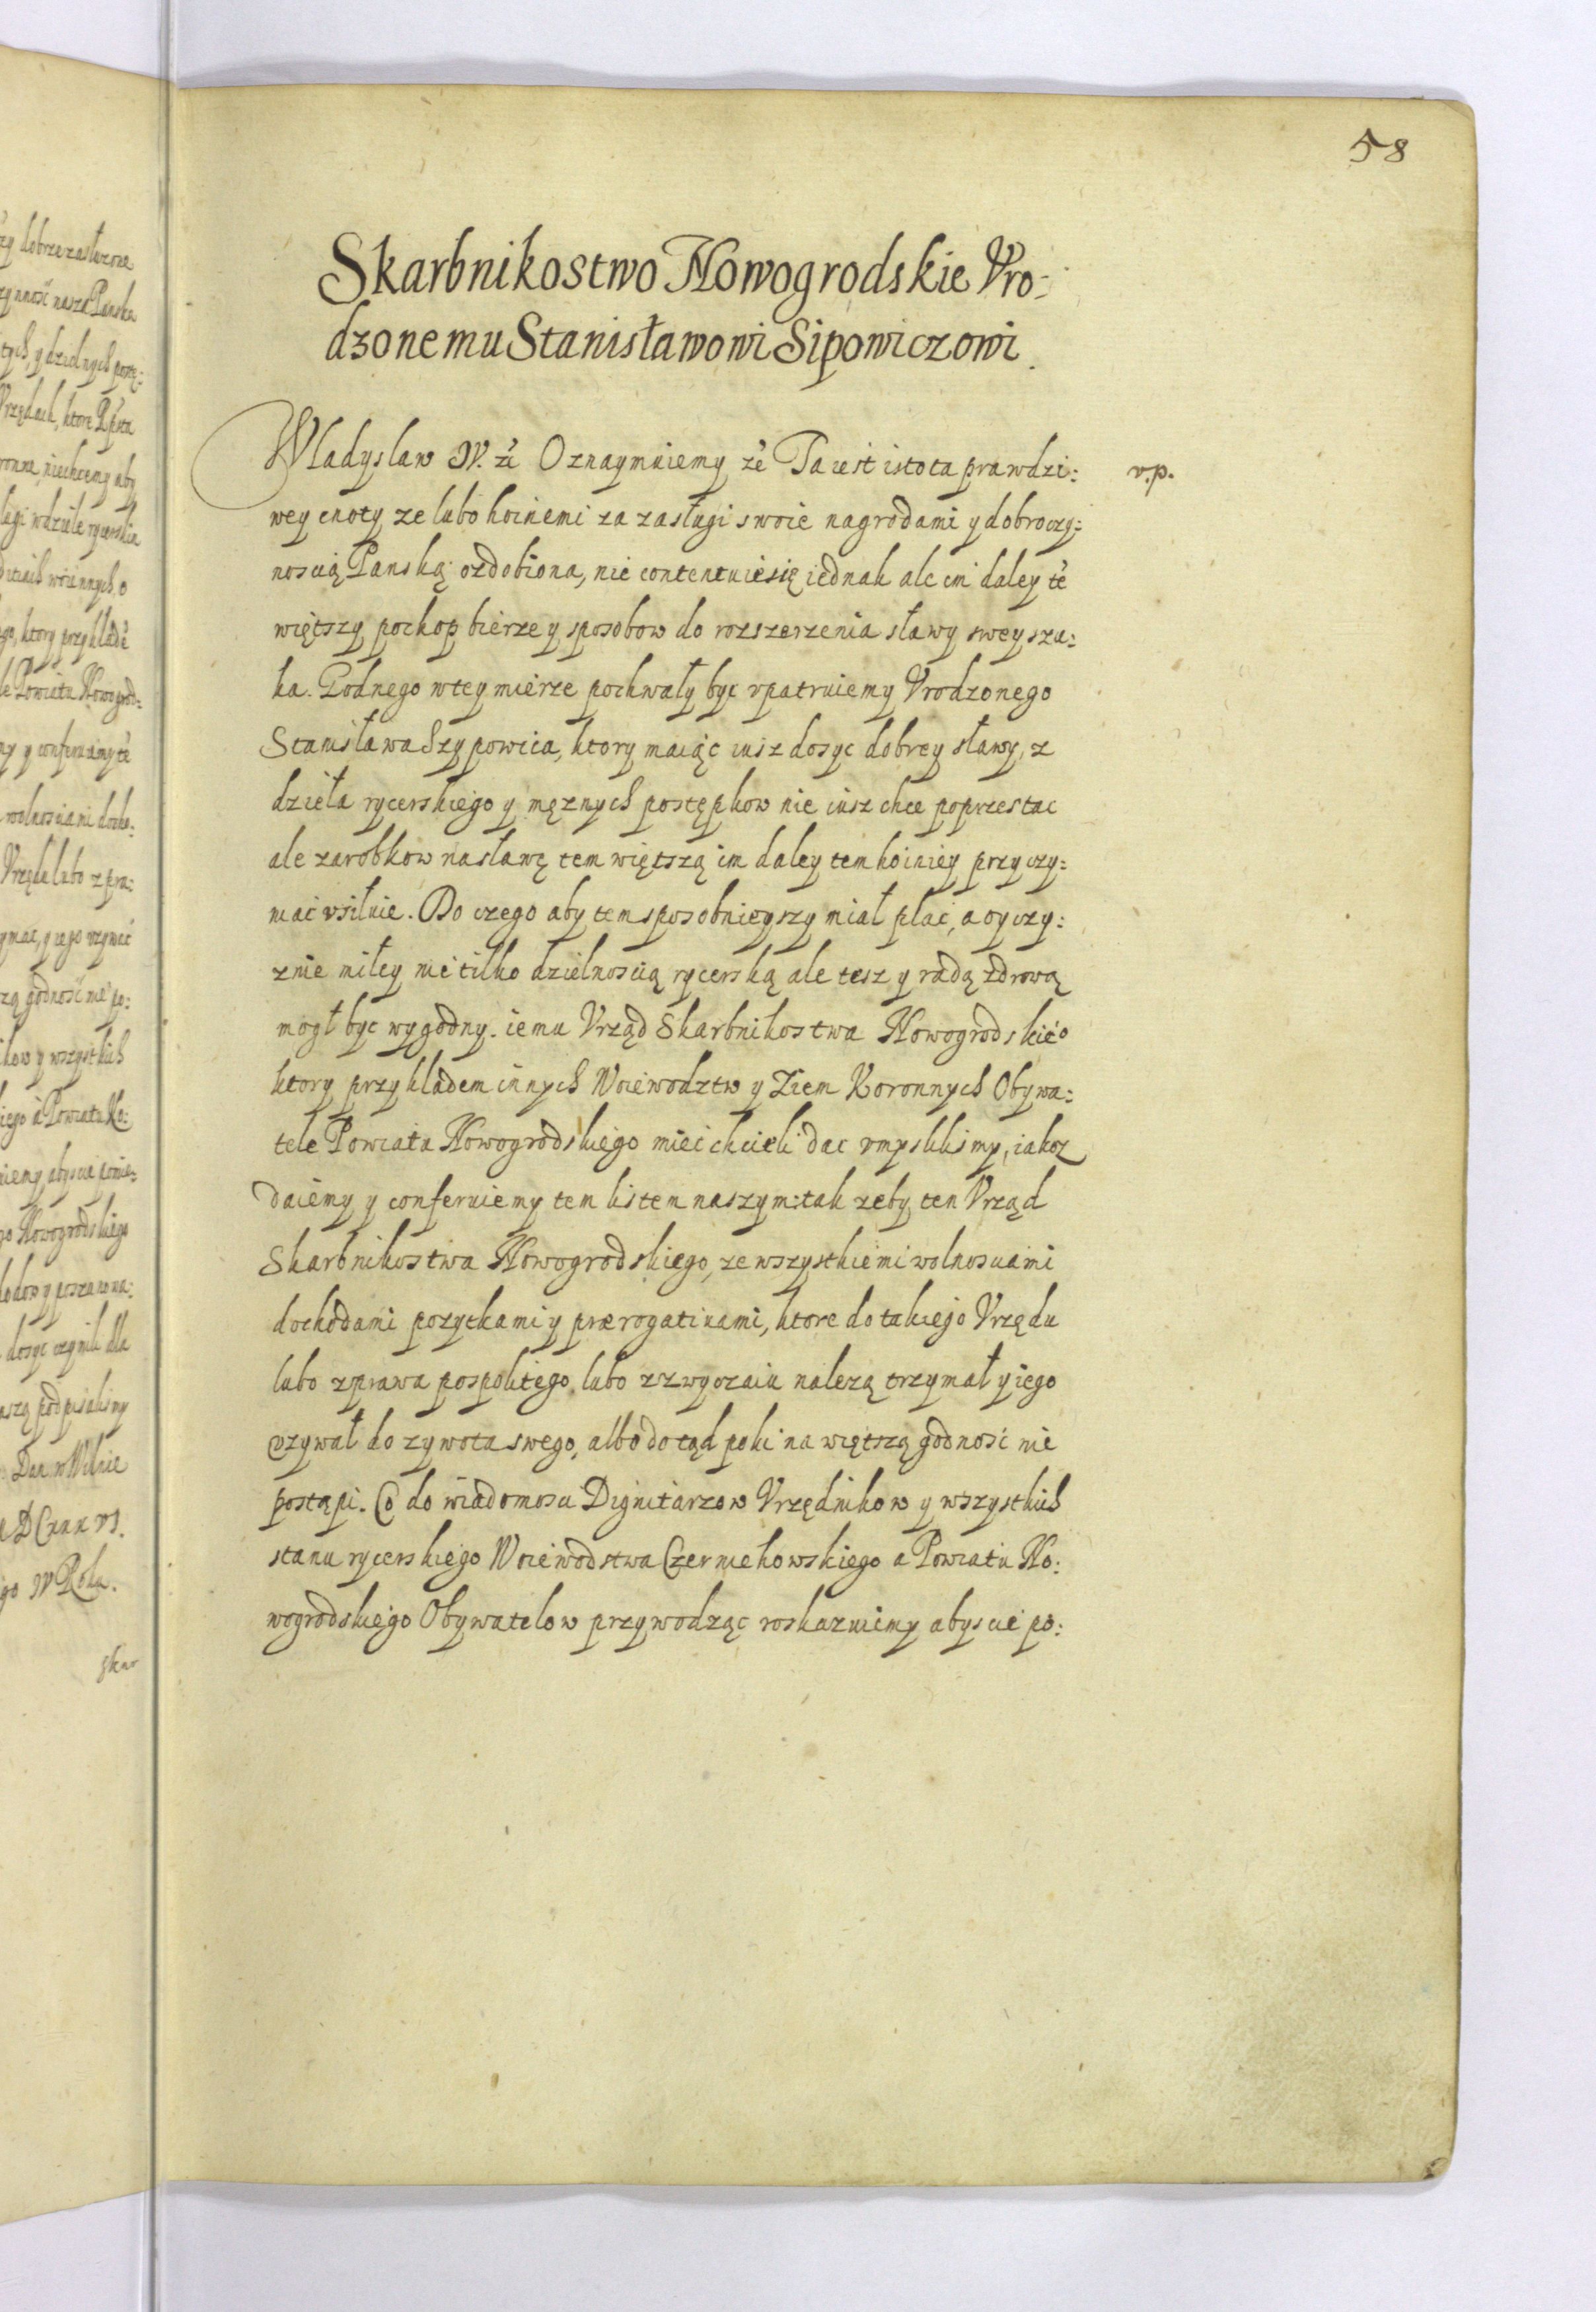 58
Skarbnikostwo Nowogrodskie Vro-
dzonemu Stanisławowi Sipowiczowi.
Wladyslaw IV. Oznaymuiemy że Ta iest istota prawdzi: v.p.
wey cnoty ze lubo hoinemi za zasługi swoie nagrodami y dobroczy:
noscią Panską ozdobiona, nie contentuie się iednak ale im daley tē
więtszy pochop bierze y sposobow do rozszerzenia sławy swey szu:
ka. Godnego w tey mierze pochwały byc vpatruiemy Vrodzonego
Stanisława Szypowica, ktory maiąc iusz dosyc dobrey sławy, z
dzieła rycerskiego y mężnych postępkow nie iusz chce poprzestac
ale zarobkow na sławę tem więtszą im daley tem hoiniey przyczy:
niac vsiłuie. Do czego aby tem sposobnieyszy miał plac, a oyczy:
znie miłey nie tilko dzielnoscią rycerską ale tesz y radą zdrową
mogł byc wygodny. iemu Vrząd Skarbnikostwa Nowogrodskieo
ktory przykladem innych Woiewodztw y Ziem Koronnych Obywa:
tele Powiatu Nowogrodskiego miec chcieli dac vmyslilismy, iakoz
daiemy y conferuiemy tem listem naszym: tak zeby ten Vrząd
Skarbnikostwa Nowogrodskiego, ze wszystkiemi wolnosciami
dochodami pozytkami y prærogatiuami, ktore do takiego Vrzędu
lubo z prawa pospolitego, lubo z zwyczaiu nalezą trzymał y iego
vzywał do zywota swego, albo do tąd poki na więtszą godnosc nie
postąpi. Co do wiadomosci Dignitarzow Vrzędnikow y wszystkich
stanu rycerskiego Woiewodstwa Czerniehowskiego a Powiatu No:
wogrodskiego Obywatelow przywodząc roskazuiemy abyscie po: